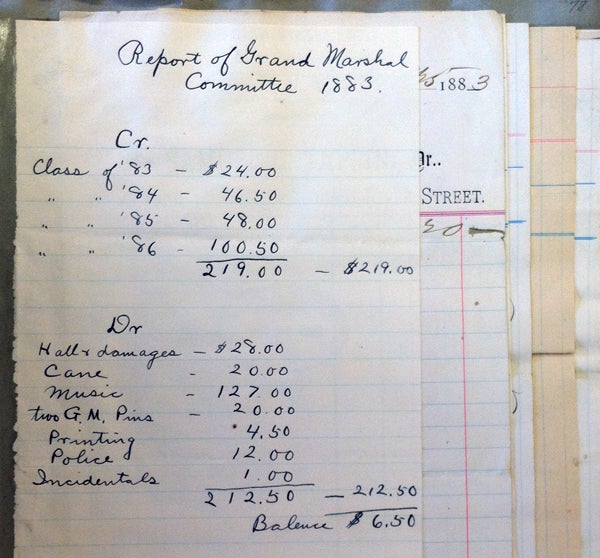 Report of Grand Marshal
Committee 1883.
Cr.
Class of '83 - $24.00
" " '84 - 46.50
" " '85 - 48.00
" " '86 - 100.50
219.00 - $219.00
Dr
Hall & damages - $28.00
Cane - 20.00
Music - 127.00
two G.M. Pins - 20.00
Printing 4.50
Police 12.00
Incidentals 1.00
212.50 - 212.50
Balence $ 6.50
1883
Dr..
STREET.